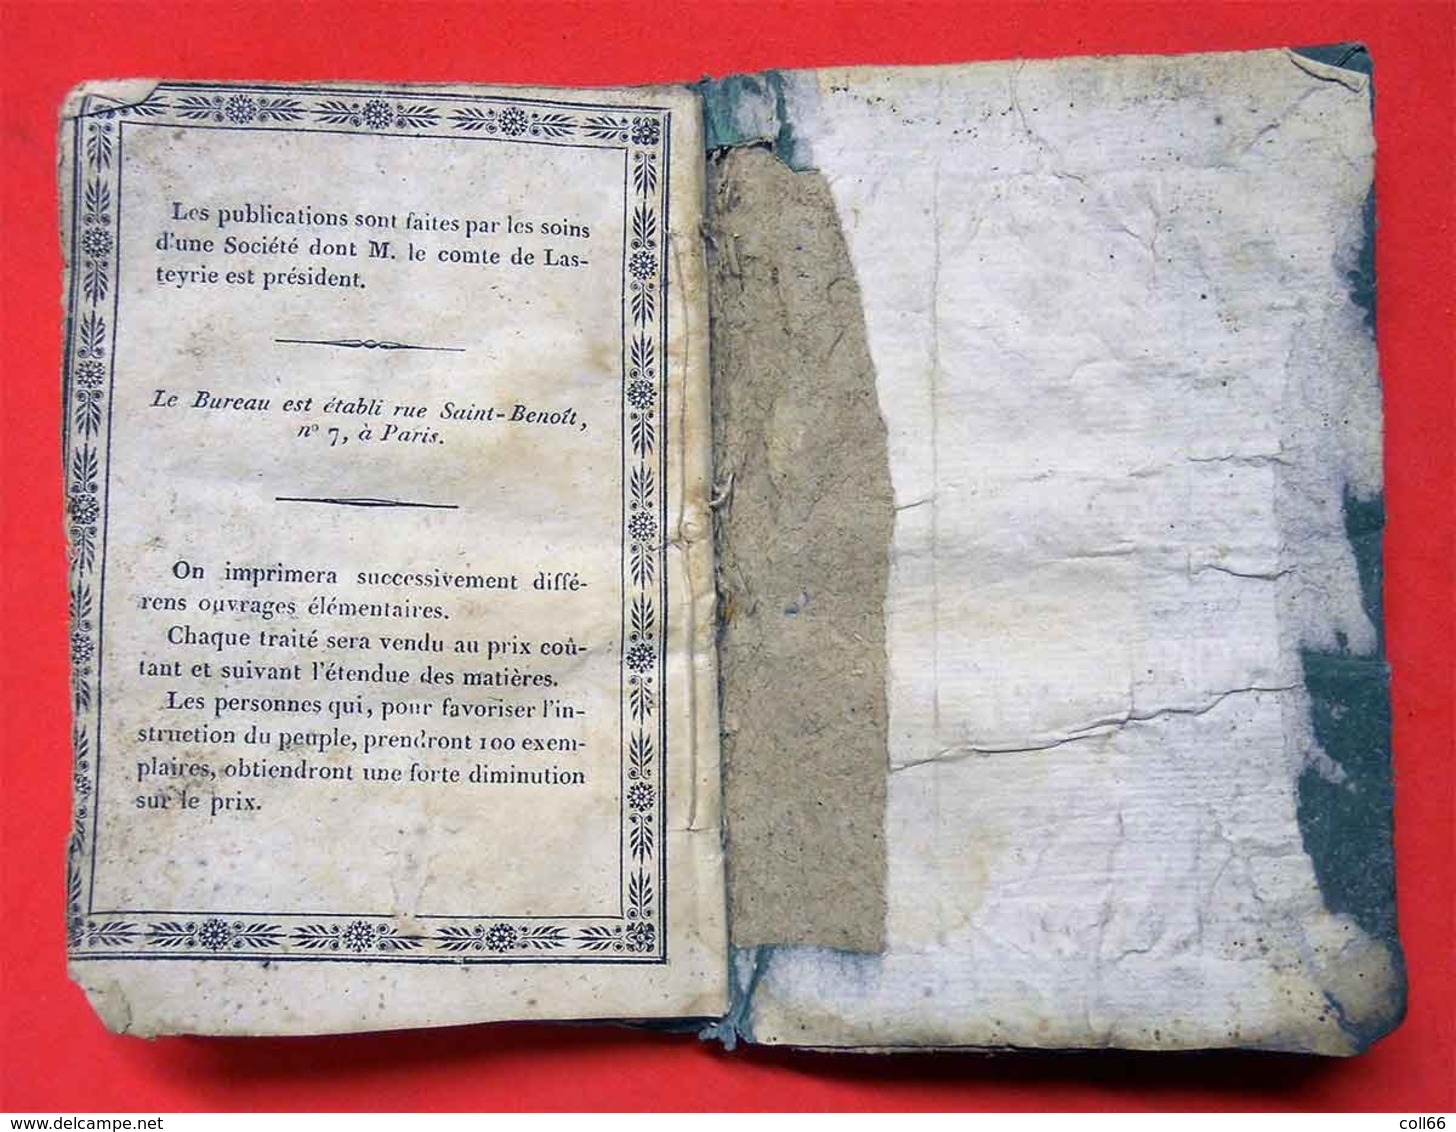 Les publications sont faites par les soins
d'une Société dont M. le comte de Las-
teyrie est président.
Le Bureau est établi rue Saint-Benoît,
n° 7, à Paris.
On imprimera successivement diffé-
rens ouvrages élémentaires.
Chaque traité sera vendu au prix coû-
tant et suivant l'étendue des matières.
Les personnes qui, pour favoriser l'in-
struction du peuple, prendront 100 exem-
plaires, obtiendront une forte diminution
sur le prix.
www.delcampe.net
coll66